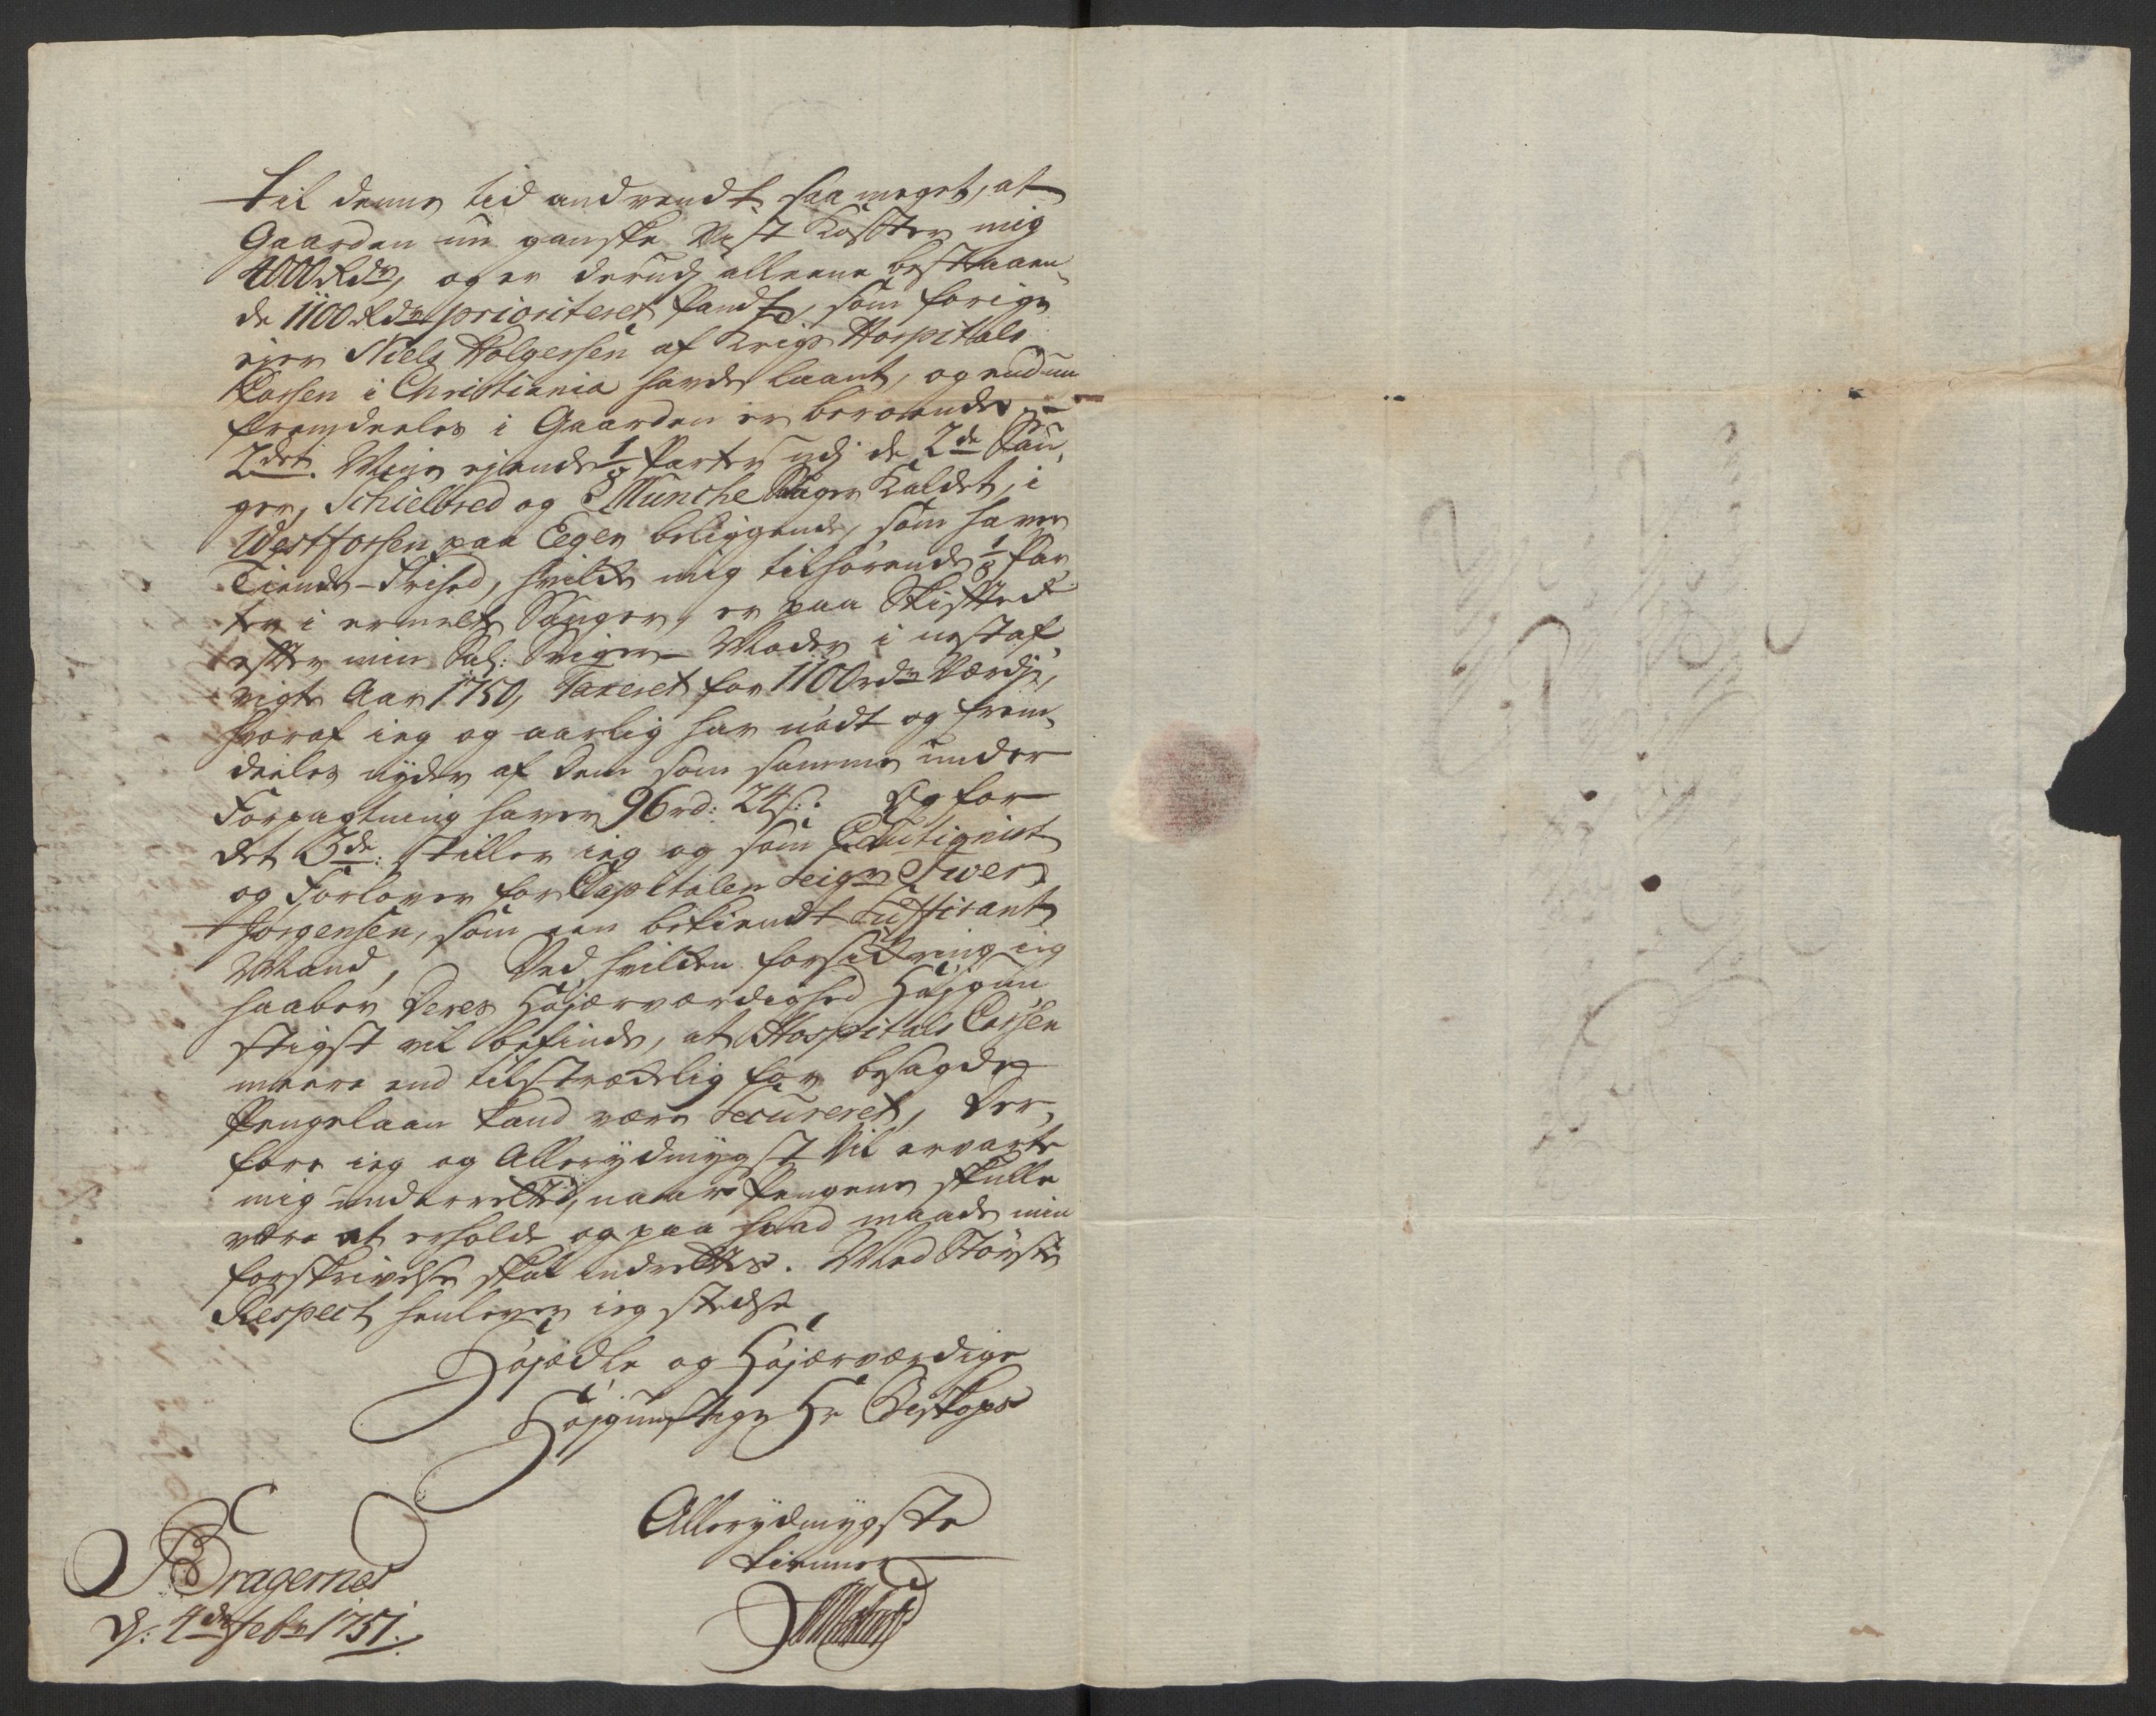 til denne tid andvendt saa meget, at
Gaarden nu ganske vist koster mig
4000 Rdr, og er derudj alleene bestaaen-
de 1100 Rdr prioriteret Pandt, som forige
ejer Niels Holgersen af Krigs Hospitals
Cassen i Christiania havde laant, og endnu
fremdeeles i Gaarden er beroende. –
2det. Mine ejende 1/8 Parter udj de 2de Sau-
ger, Schielbred og Munche Sauger kaldet, i
Westfossen paa Eger beliggende, som haver
Tiende-Frihed, hvilke mig tilhørende 1/8 Par-
ter i ermelte Sauger, er paa Skiftet
efter min Sal: Sviger-Moder i nestaf-
vigte Aar 1750, Taxeret for 1100 rdr Værdje,
hvoraf ieg og aarlig har nødt og frem-
deeles nyder af dem som samme under
Forpagtning haver 96 rd: 24 s:. Og for
det 3de: stiller ieg og som Cautionist
og Forlover for Capitalen Seigr Iver
Jørgensen, som een bekiendt Suffisant
Mand, Ved hvilken forsickring ieg
haaber Deres Højærværdighed Højgun-
stigst vil befinde, at Hospitals Cassen
meere end tilstrækkelig for besagde
Pengelaan kand være Secureret, der-
fore ieg og Allerydmygst vil ervarte
mig underrettet, naar Pengene skulle
være at erholde og paa hvad maade min
forskrivelse skal indrettes. Med Største
Respect henlever ieg stedse
Højædle og Højærværdige
Højgunstige Hr Biskops
Allerydmygste
tienner
Bragernes
d: 4de febr 1751.